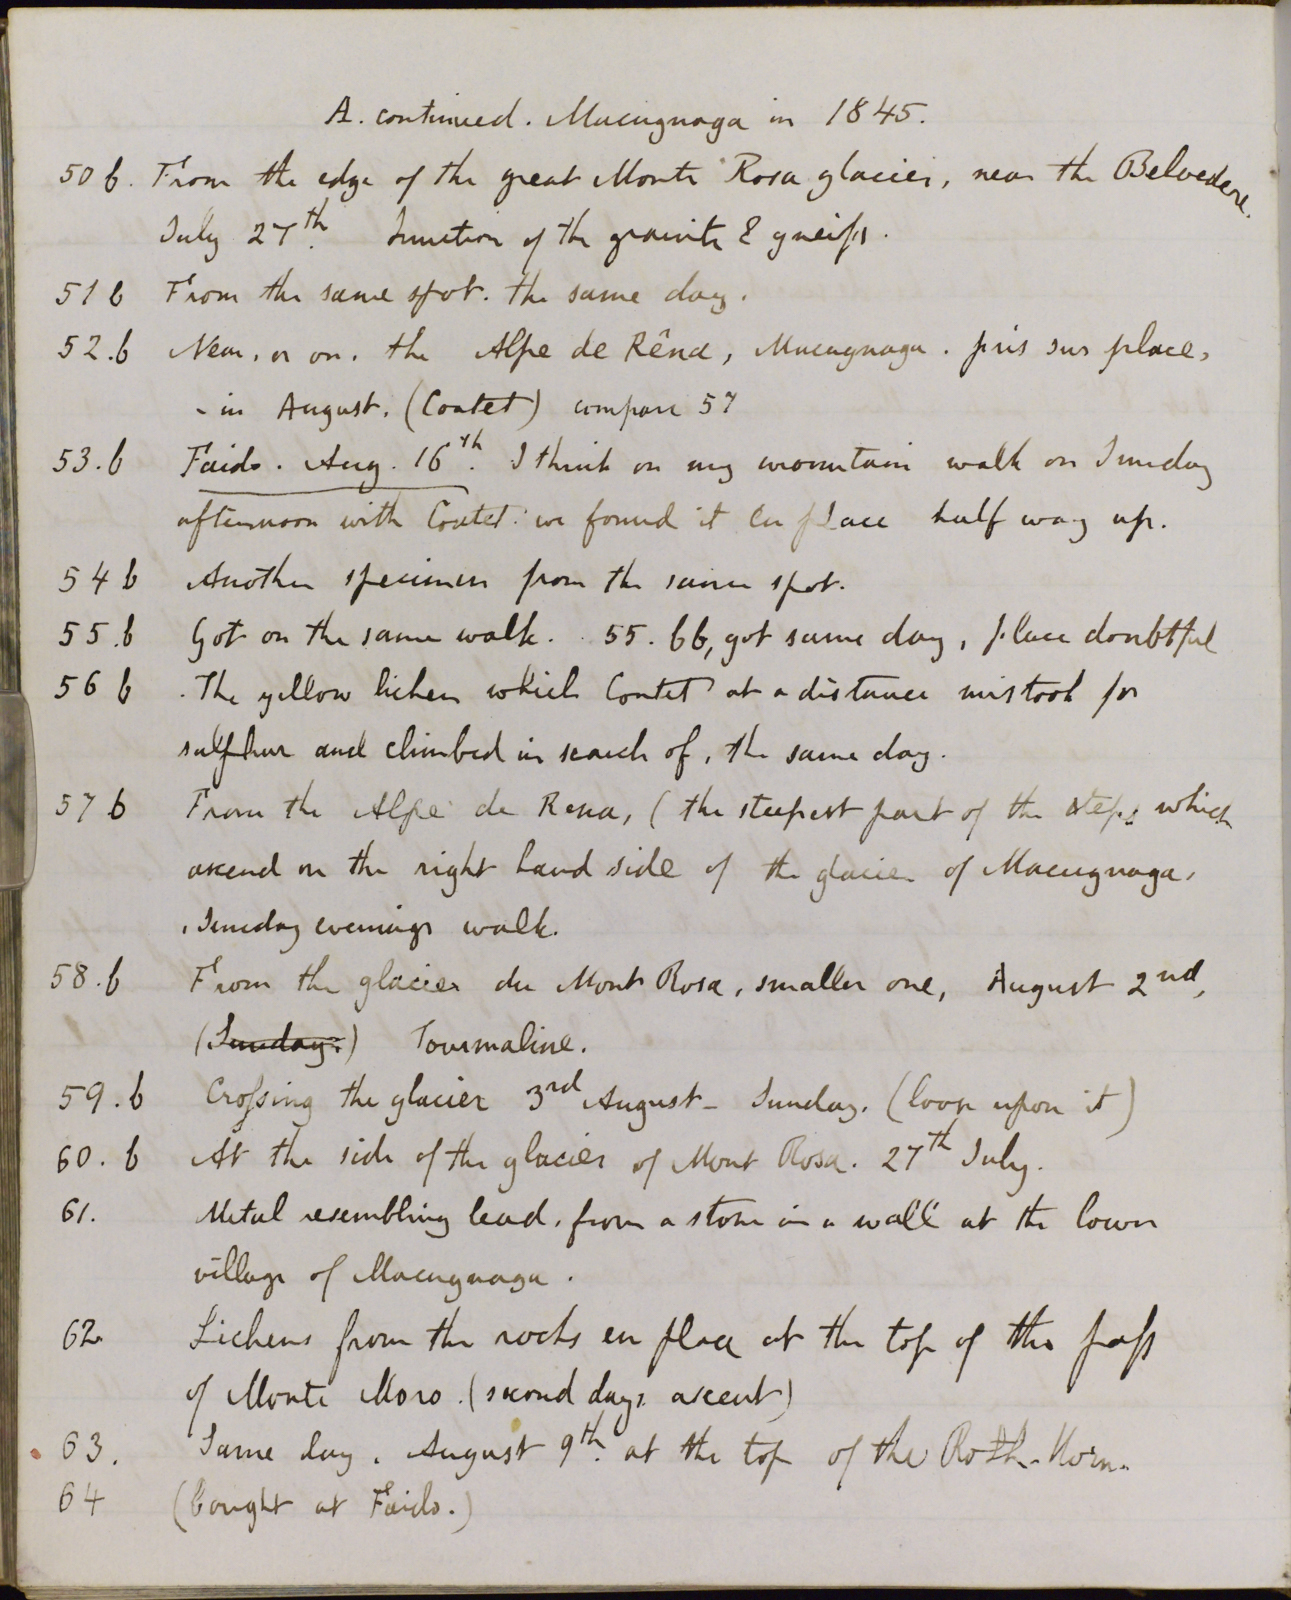 A. continued. Macugnaga in 1845.
50 b. From the edge of the great Monte Rosa glacier, near the Belvedere.
July 27th. Junction of the granite & gneiss.
51 b From the same spot. the same day.
52. b Near, or on, the Alpe de Rêna, Macugnaga. pris sur place,
- in August. (Coutet) compare 57
53. b Faido. Aug. 16th. I think on my mountain walk on Sunday
afternoon with Coutet: we found it en place half way up.
54 b Another specimen from the same spot.
55. b Got on the same walk. 55. bb, got same day, place doubtful
56 b The yellow lichen which Coutet at a distance mistook for
sulphur and climbed in search of, the same day.
57 b From the Alpe de Rena, (the steepest part of the steps which
ascend on the right hand side of the glacier of Macugnaga,
Sunday evenings walk.
58. b From the glacier du Mont Rosa, smaller one, August 2nd,
(Sunday.) Tourmaline.
59. b Crossing the glacier 3rd August - Sunday. (loose upon it)
60. b At the side of the glacier of Mont Rosa. 27th July.
61. Metal resembling lead, from a stone in a wall at the lower
village of Macugnaga.
62 Lichens from the rocks en place at the top of the pass
of Monte Moro. (second days ascent)
63. Same day, August 9th. at the top of the Roth-Horn.
64 (Bought at Faido.)